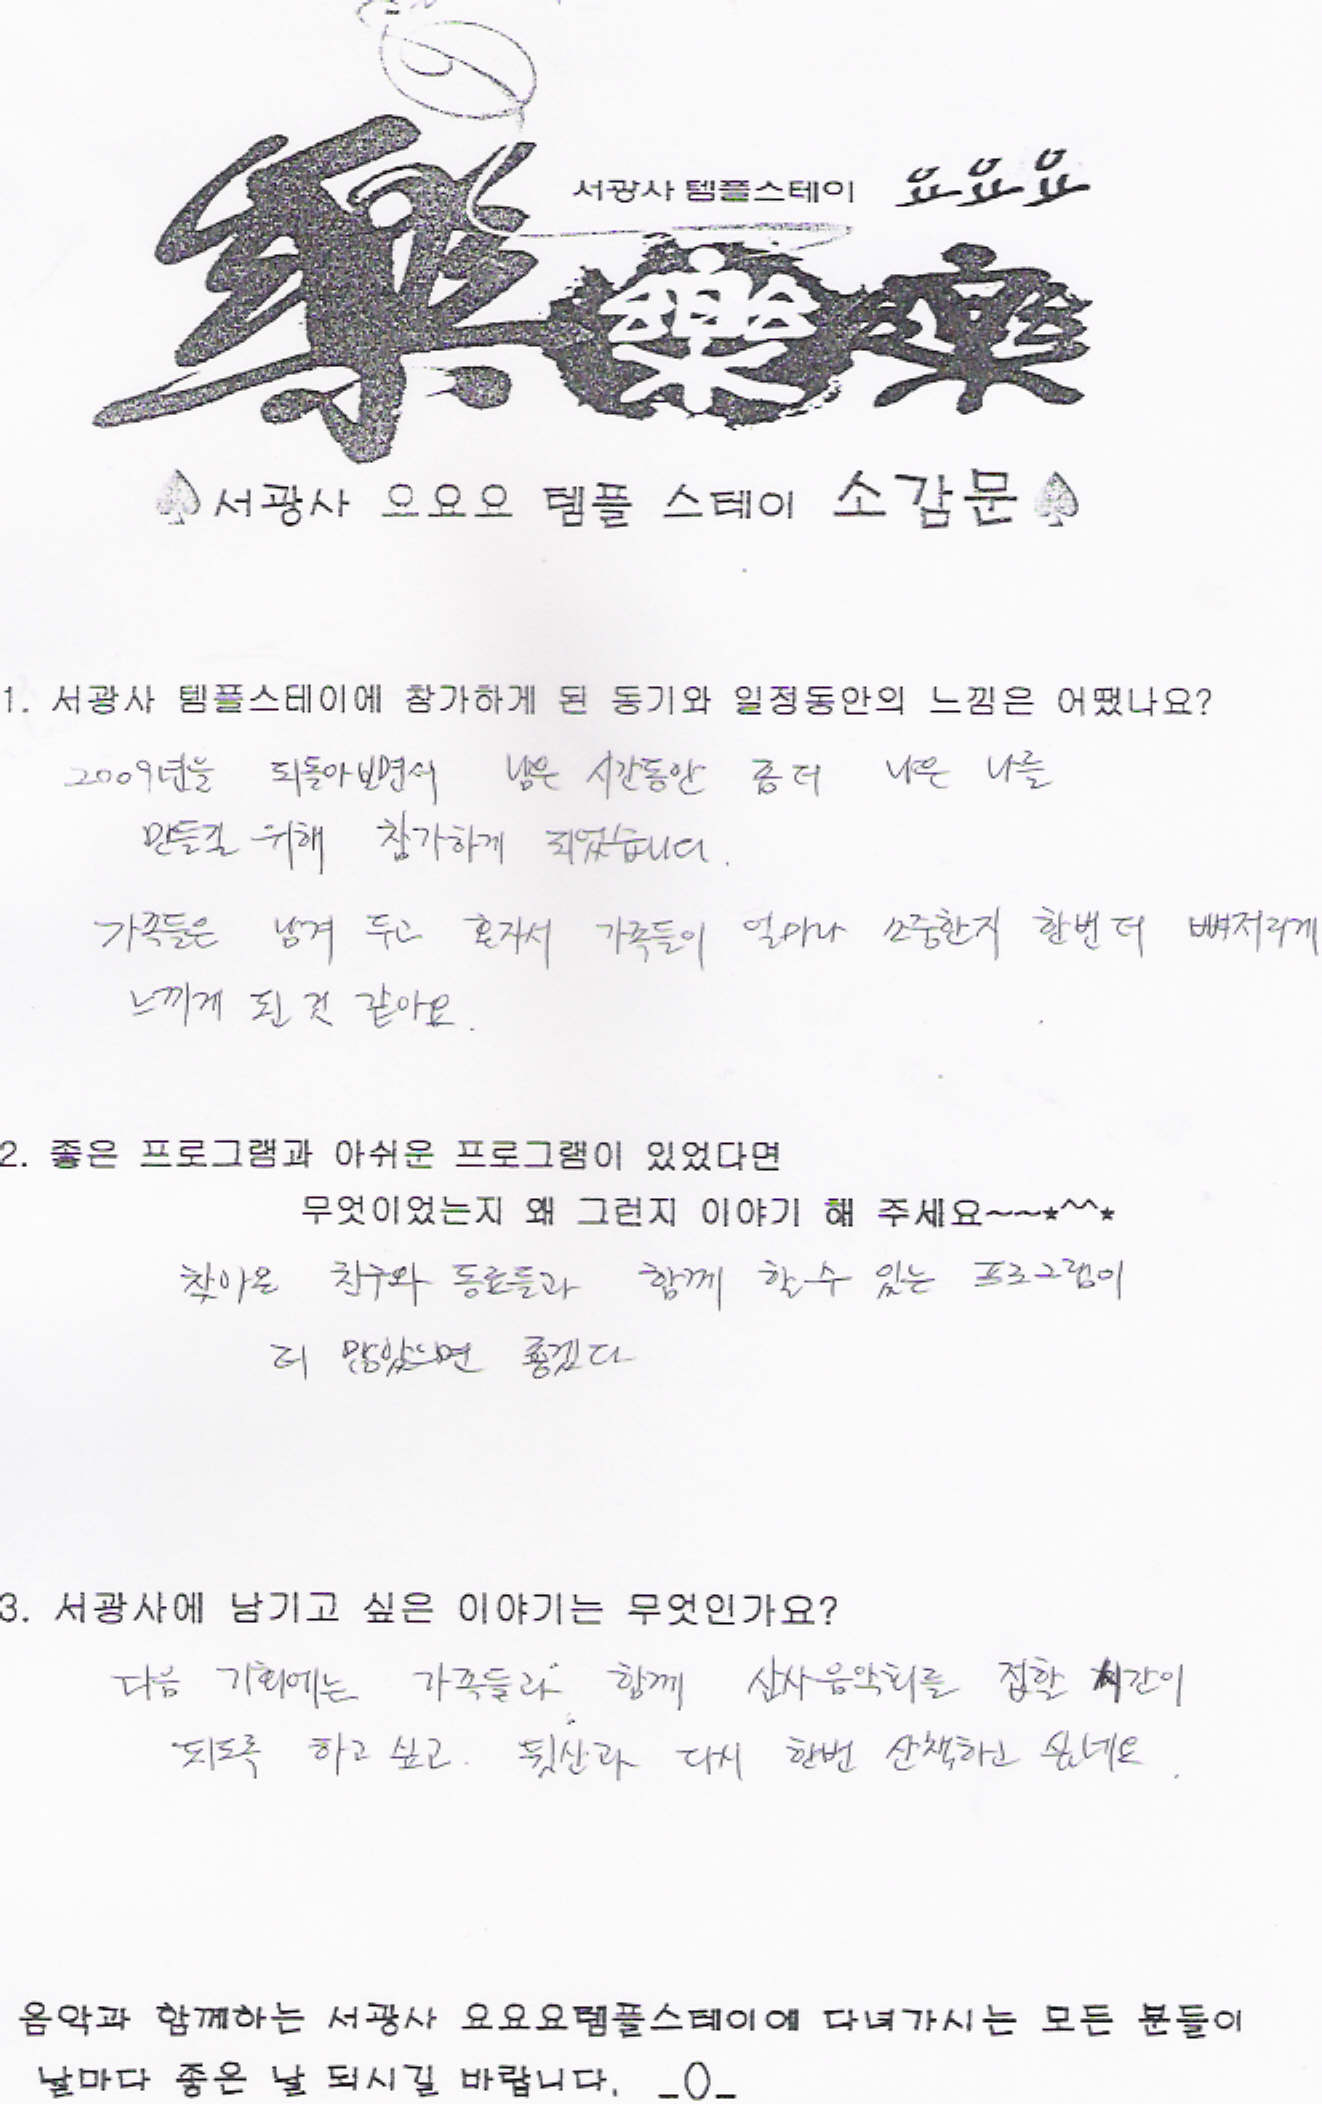 서광사 템플스테이 요요요
樂 樂 樂
서광사 으요요 템플 스테이 소감문
1. 서광사 템플스테이에 참가하게 된 동기와 일정동안의 느낌은 어땠나요?
2009년을 되돌아보면서 남은 시간동안 좀 더 나은 나를
만들길 위해 참가하게 되었습니다.
가족들은 남겨 두고 혼자서 가족들이 얼마나 소중한지 한번 더 뼈저리게
느끼게 된 것 같아요.
2. 좋은 프로그램과 아쉬운 프로그램이 있었다면
무엇이었는지 왜 그런지 이야기 해 주세요~~*^^*
찾아온 친구와 동료들과 함께 할 수 있는 프로그램이
더 많았으면 좋겠다
3. 서광사에 남기고 싶은 이야기는 무엇인가요?
다음 기회에는 가족들과 함께 산사음악회를 접할 시간이
되도록 하고 싶고. 뒷산과 다시 한번 산책하고 싶네요.
음악과 함께하는 서광사 요요요템플스테이에 다녀가시는 모든 분들이
날마다 좋은 날 되시길 바랍니다. _()_